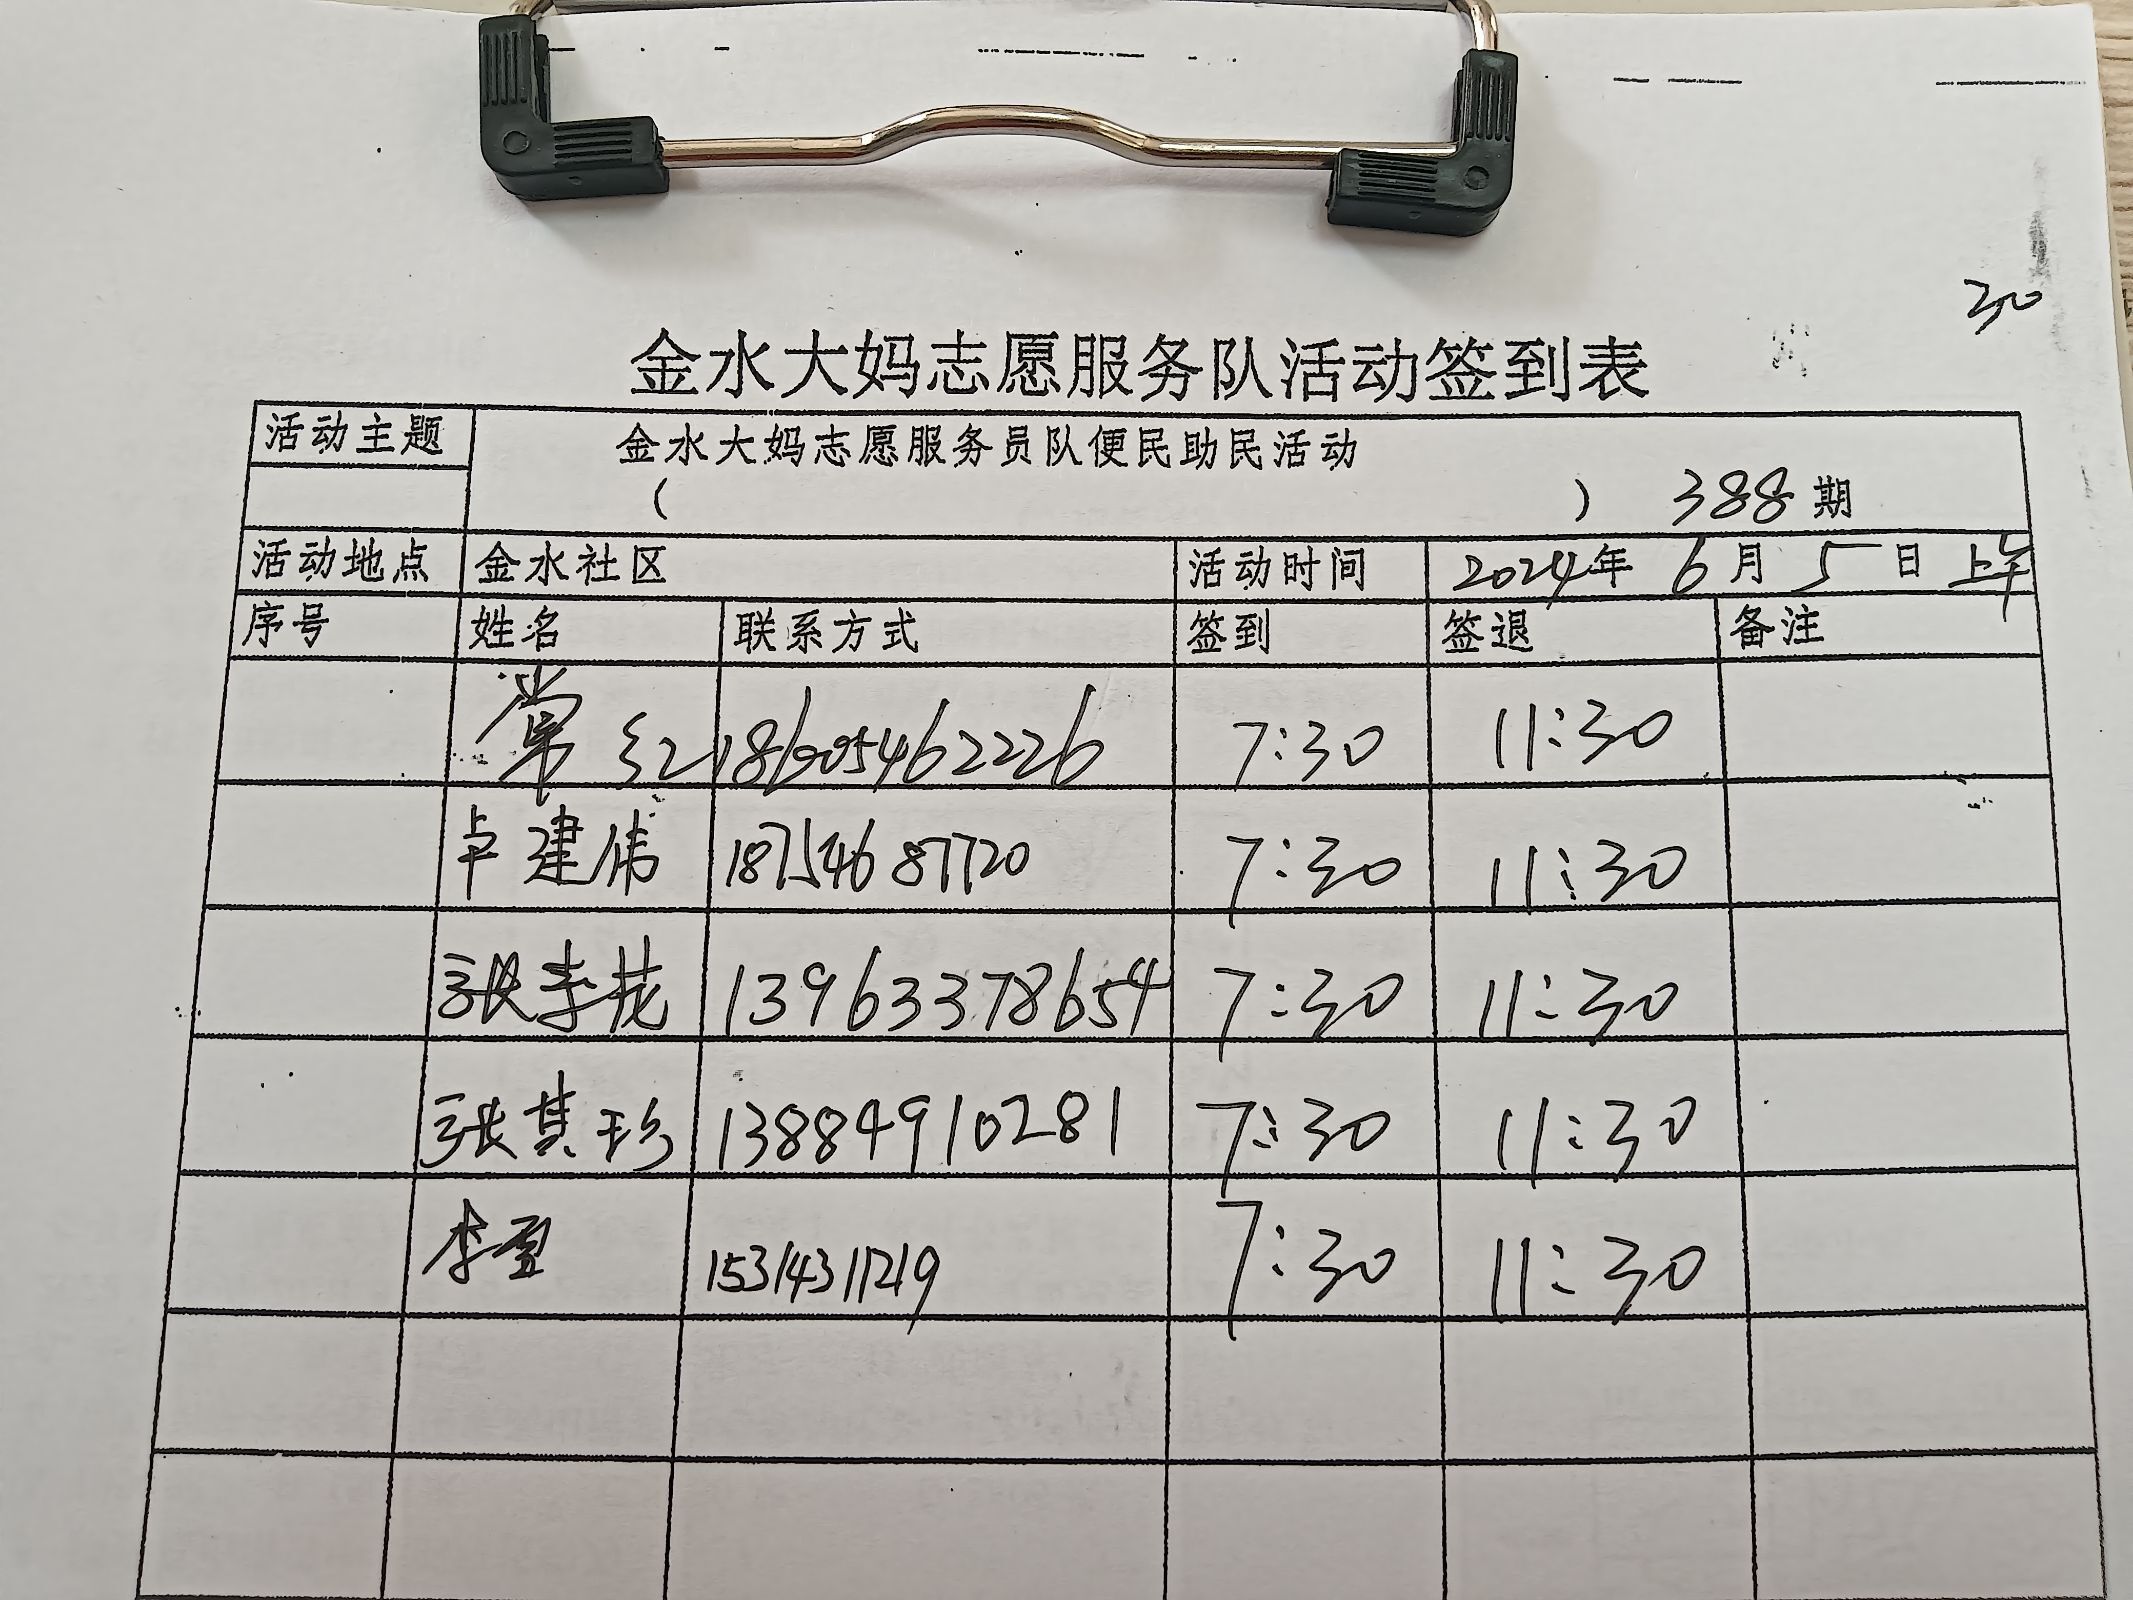 30
金水大妈志愿服务队活动签到表
活动主题 金水大妈志愿服务员队便民助民活动
( ) 388期
活动地点 金水社区 活动时间 2024年 6月 5日 上午
序号 姓名 联系方式 签到 签退 备注
常红 18605462226 7:30 11:30
卢建伟 18754687720 7:30 11:30
张 13963378654 7:30 11:30
张其珍 13884910281 7:30 11:30
李 15314311219 7:30 11:30